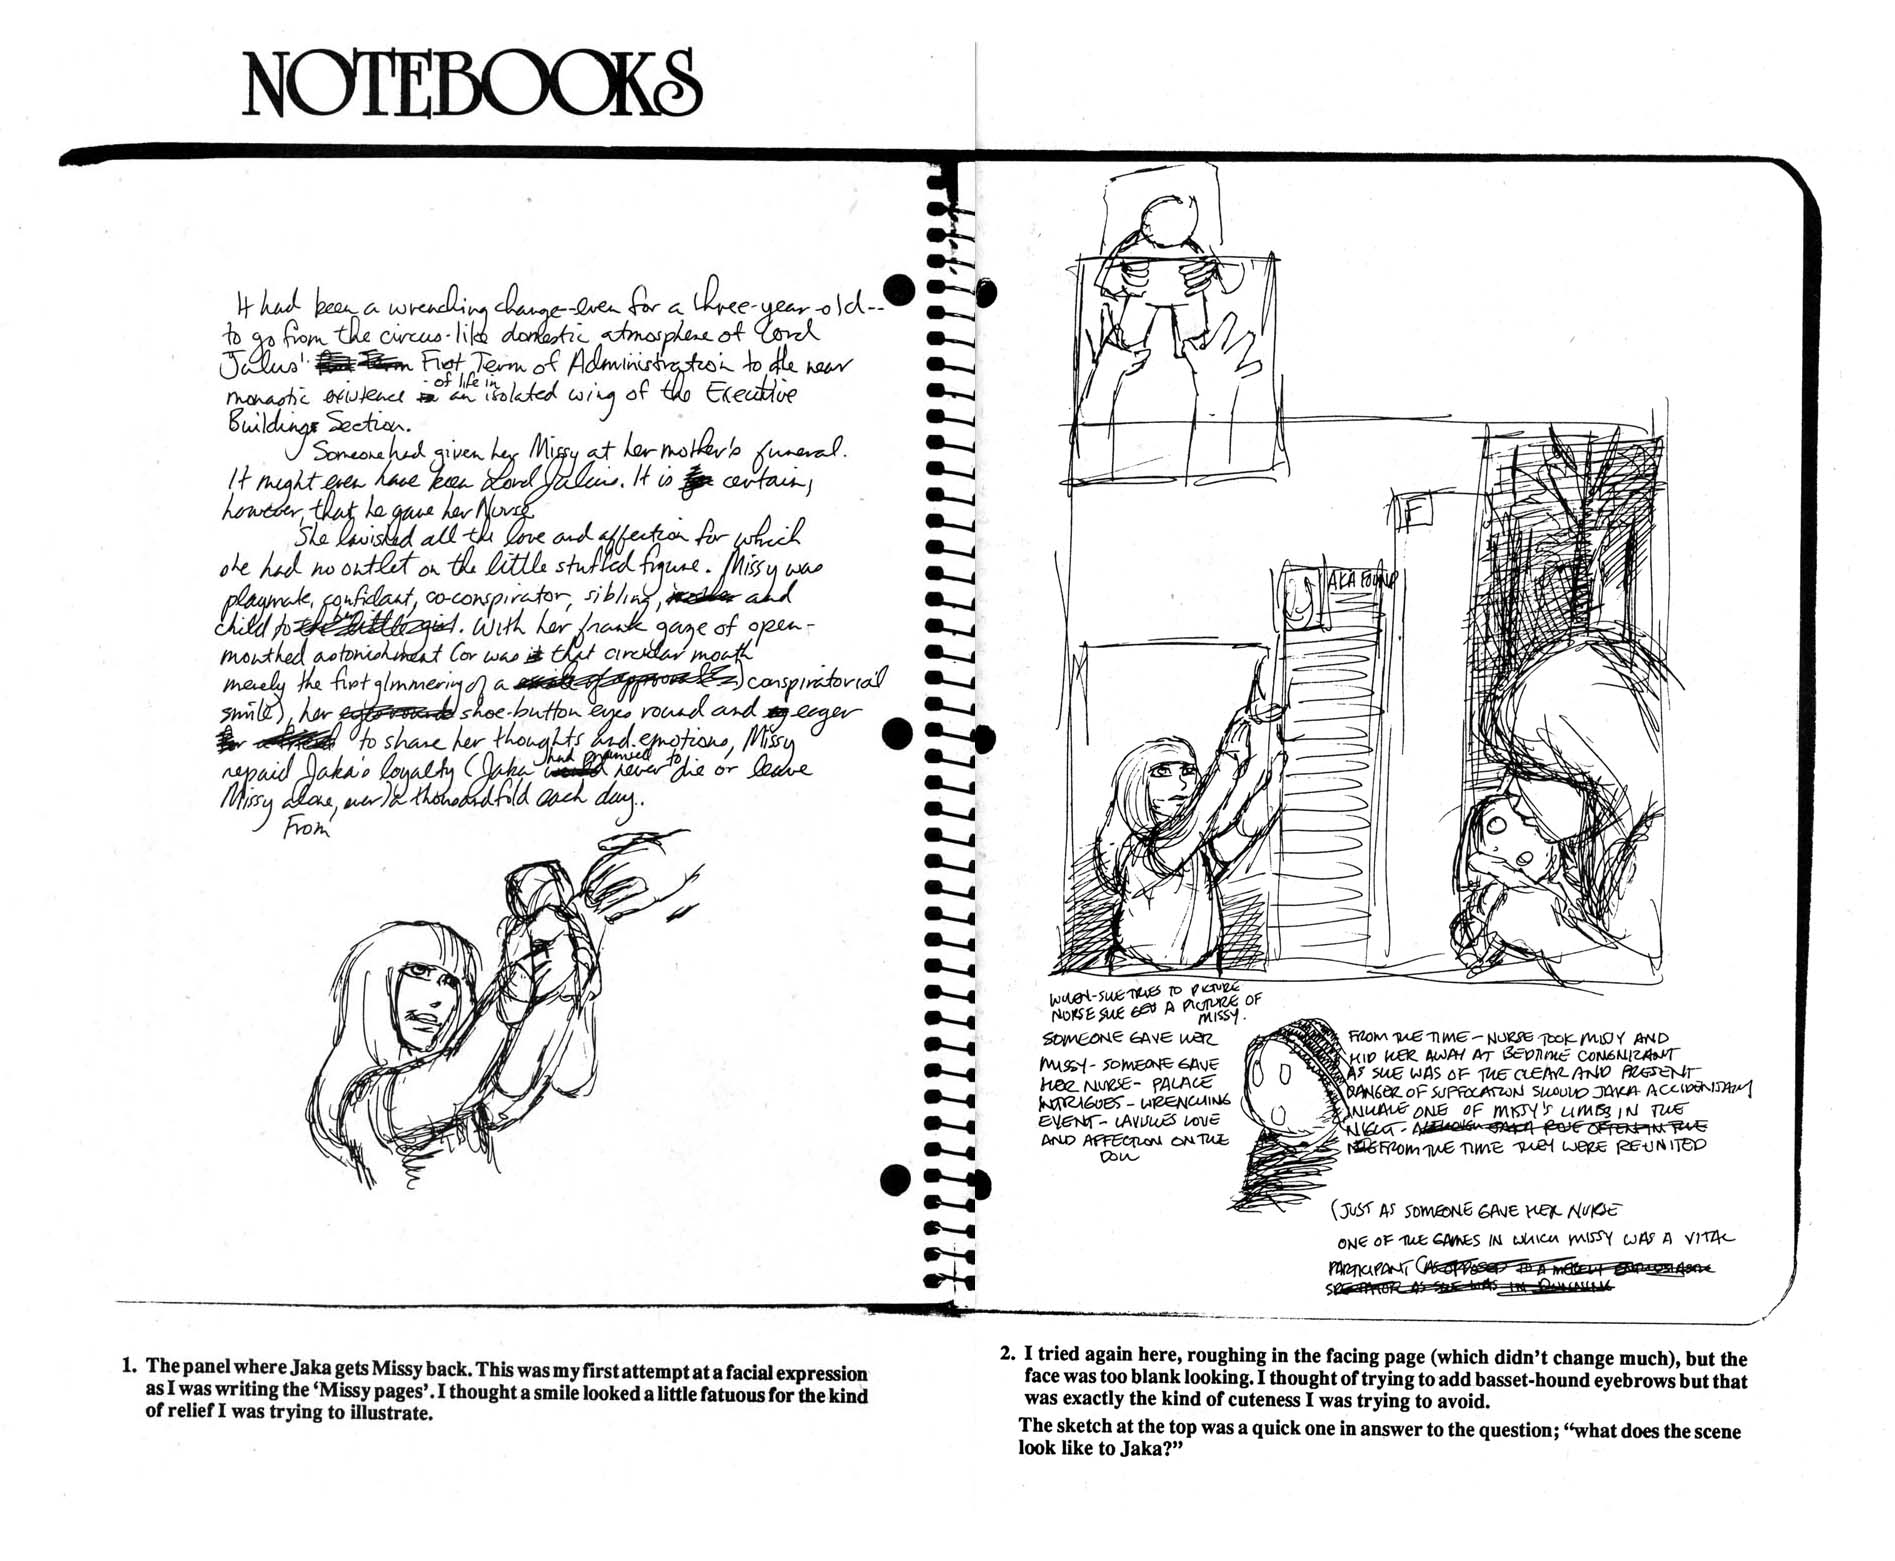 NOTEBOOKS
It had been a wrenching change--even for a three-year-old--
to go from the circus-like domestic atmosphere of Lord
Julius' First Term of Administration to the near
monastic existence of life in an isolated wing of the Executive
Buildings Section.
Someone had given her Missy at her mother's funeral.
It might even have been Lord Julius. It is certain,
however, that he gave her Nurse
She lavished all the love and affection for which
she had no outlet on the little stuffed figure. Missy was
playmate, confidant, co-conspirator, sibling, and
child to her. With her frank gaze of open-
mouthed astonishment (or was that circular mouth
merely the first glimmering of a conspiratorial
smile), her shoe-button eyes round and eager
to share her thoughts and emotions, Missy
repaid Jaka's loyalty (Jaka had promised to never die or leave
Missy alone, ever) a thousandfold each day.
From
F
AKA FOUND
WHEN-SHE TRIES TO PICTURE
NURSE SHE GETS A PICTURE OF
MISSY.
SOMEONE GAVE HER
MISSY - SOMEONE GAVE
HER NURSE - PALACE
INTRIGUES - WRENCHING
EVENT - LAVISHES LOVE
AND AFFECTION ON THE
DOLL
FROM THE TIME - NURSE TOOK MISSY AND
HID HER AWAY AT BEDTIME CONGNIZANT
AS SHE WAS OF THE CLEAR AND PRESENT
DANGER OF SUFFOCATION SHOULD JAKA ACCIDENTALLY
INHALE ONE OF MISSY'S LIMBS IN THE
NIGHT - ALTHOUGH JAKA ROSE OFTEN IN THE
FROM THE TIME THEY WERE RE-UNITED
(JUST AS SOMEONE GAVE HER NURSE
ONE OF THE GAMES IN WHICH MISSY WAS A VITAL
PARTICIPANT (AS OPPOSED TO A MERELY ENTHUSIASTIC
SPECTATOR AS SHE WAS IN
1. The panel where Jaka gets Missy back. This was my first attempt at a facial expression
as I was writing the ‘Missy pages’. I thought a smile looked a little fatuous for the kind
of relief I was trying to illustrate.
2. I tried again here, roughing in the facing page (which didn’t change much), but the
face was too blank looking. I thought of trying to add basset-hound eyebrows but that
was exactly the kind of cuteness I was trying to avoid.
The sketch at the top was a quick one in answer to the question; “what does the scene
look like to Jaka?”